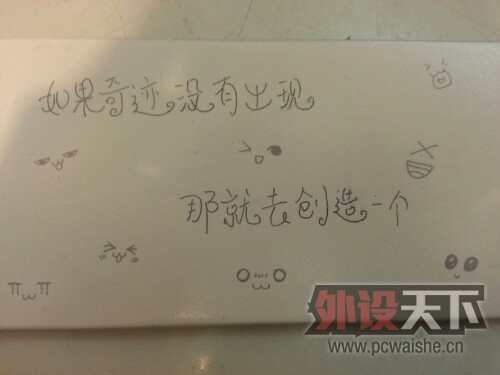 如果奇迹没有出现
那就去创造一个
外设天下
www.pcwaishe.cn